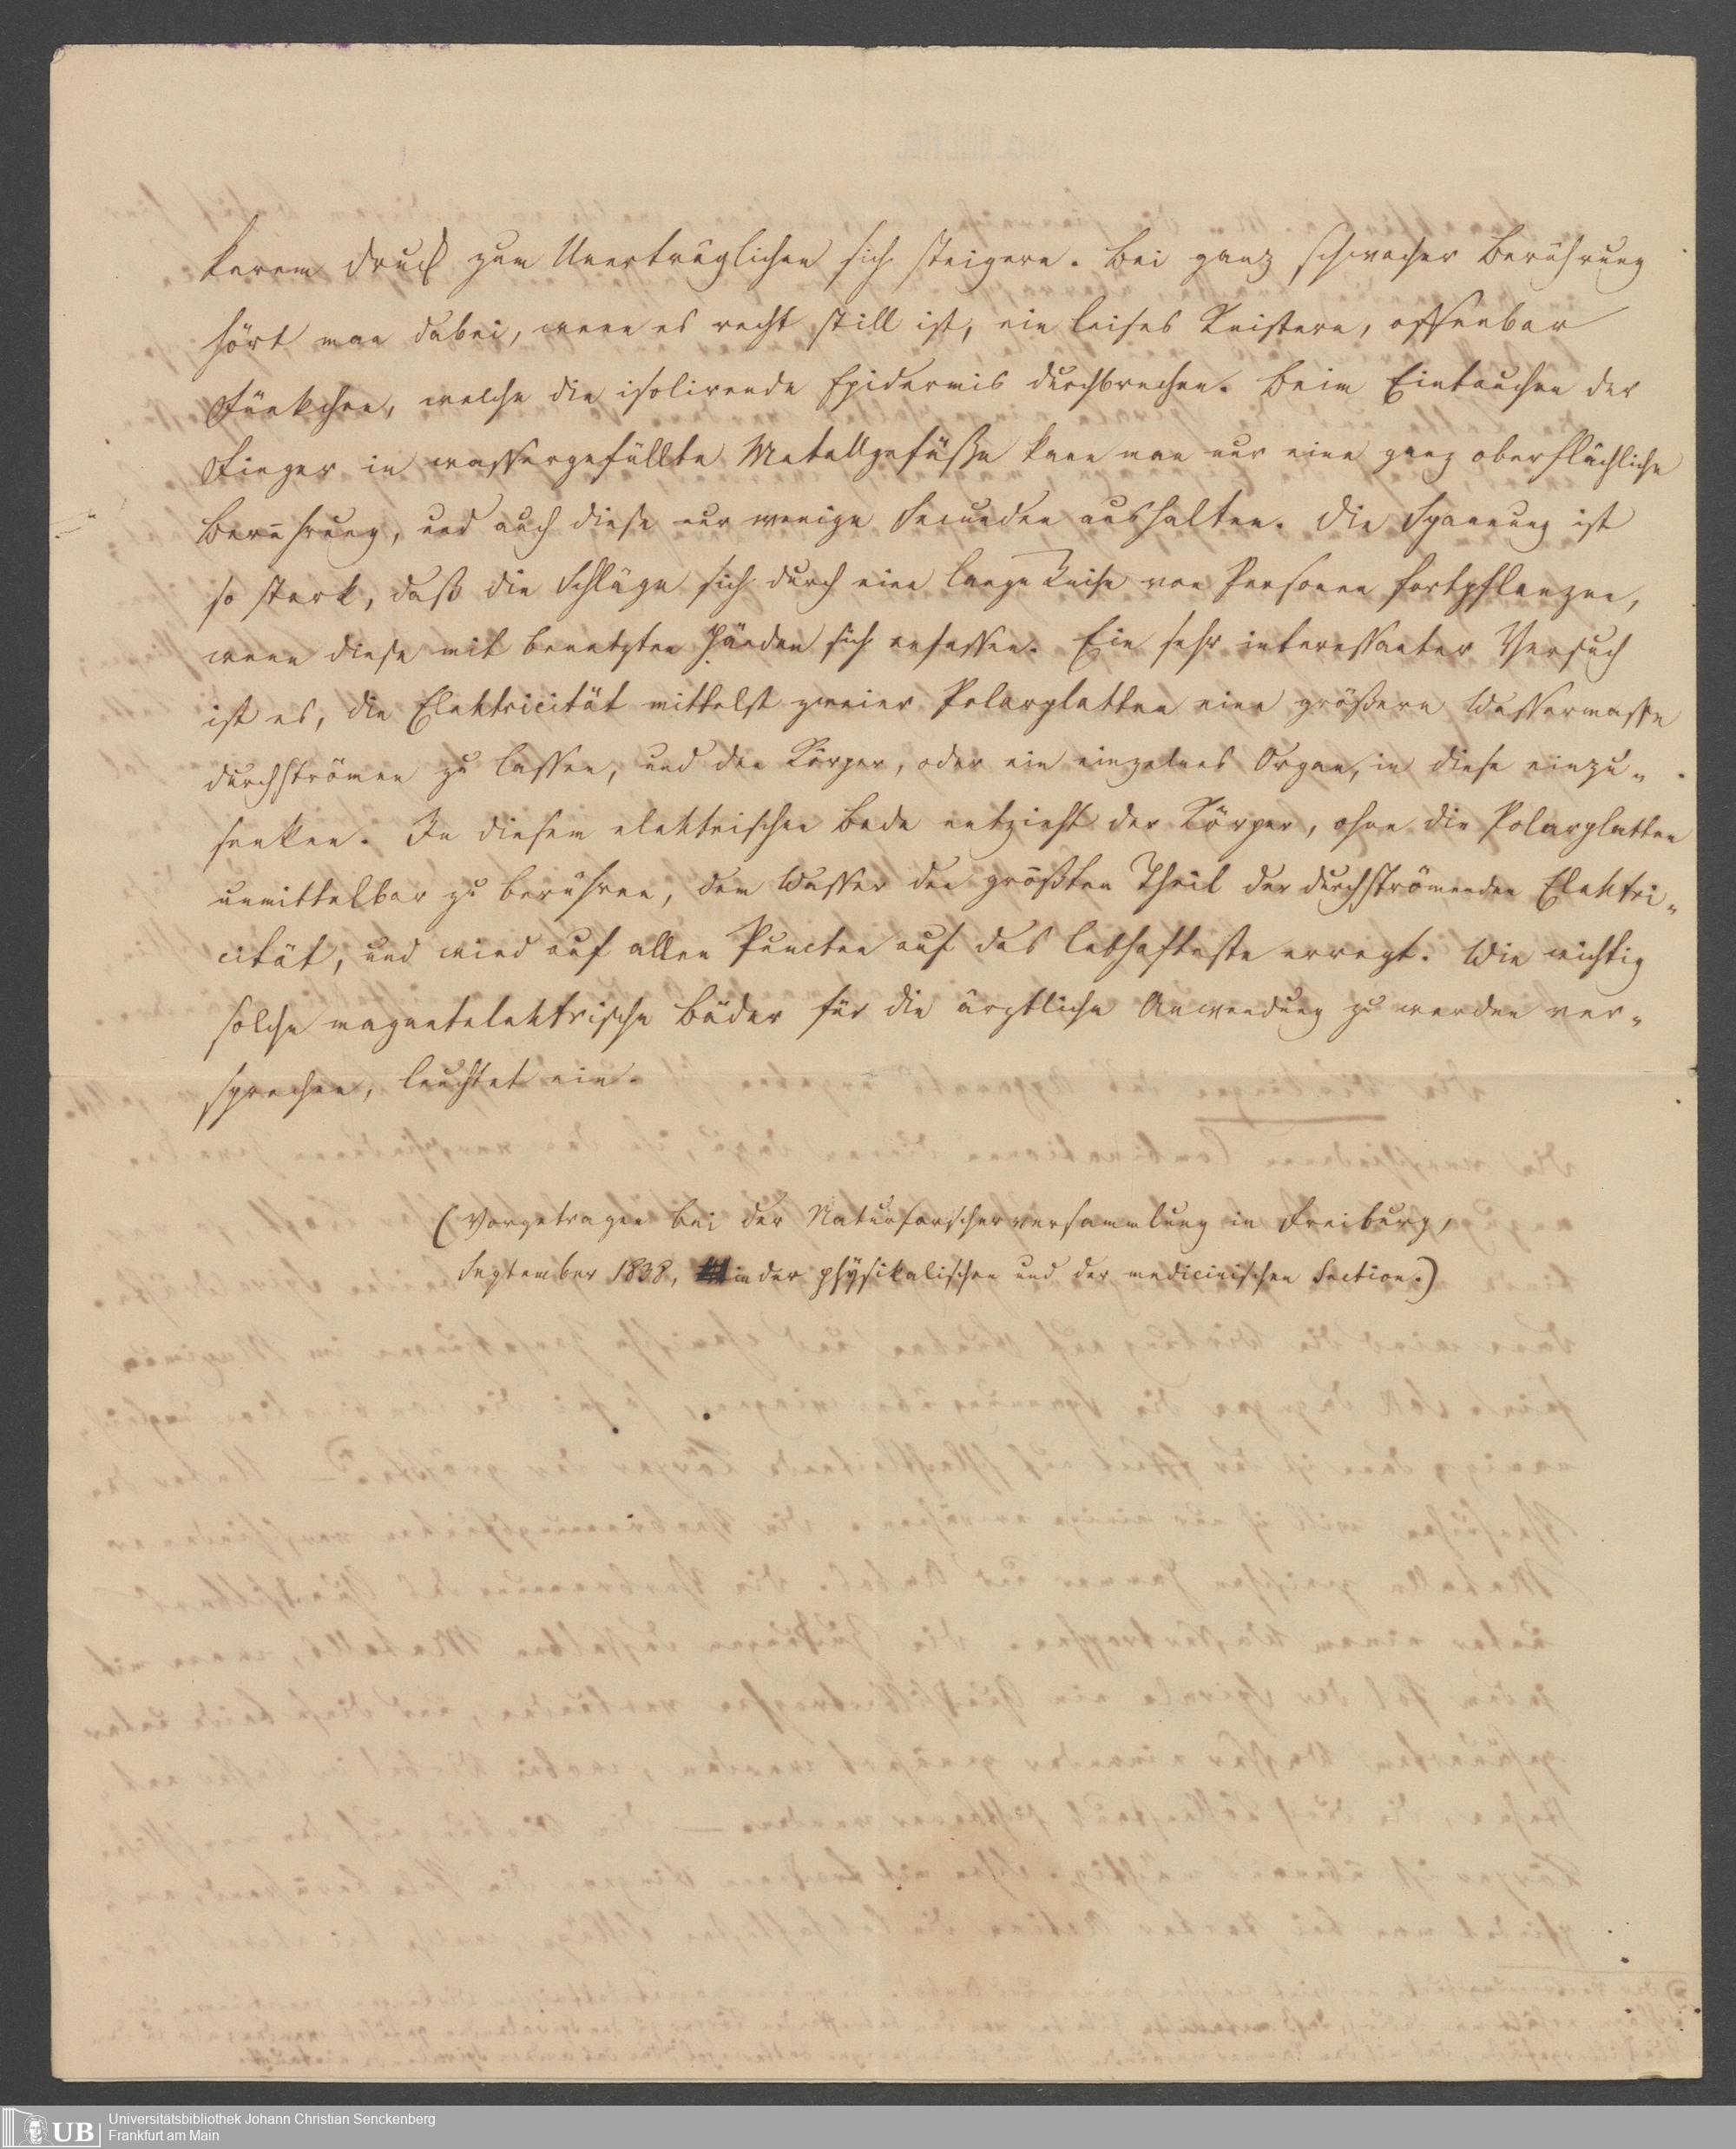 kerem Druck zum Unerträglichen sich steigern. Bei ganz schwacher Berührung
hört man dabei, wenn es recht still ist, ein leises Knistern, offenbar
Fünkchen, welche die isolirende Epidermis durchbrechen. Beim Eintauchen der
Finger in wassergefüllte Metallgefäße kann man nur eine ganz oberflächliche
Berührung, und auch diese nur wenige Secunden aushalten. Die Spannung ist
so stark, daß die Schläge sich durch eine lange Reihe von Personen fortpflanzen,
wenn diese mit benetzten Händen sich anfassen. Ein sehr interessanter Versuch
ist es, die Elektricität mittelst zweier Polarplatten eine größere Wassermasse
durchströmen zu lassen, und den Körper, oder ein einzelnes Organ, in diese einzu„
senken. In diesem elektrischen Bade entzieht der Körper, ohne die Polarplatten
unmittelbar zu berühren, dem Wasser den größten Theil der durchströmenden Elektri„
cität, und wird auf allen Puncten auf das lebhafteste erregt. Wie wichtig
solche magnetelektrische Bäder für die ärztliche Anwendung zu werden ver„
sprechen, leuchtet ein.
(Vorgetragen bei der Naturforscherversammlung in Freiburg,
September 1838, in der physikalischen und der medicinischen Section.)
UB
Universitätsbibliothek Johann Christian Senckenberg
Frankfurt am Main